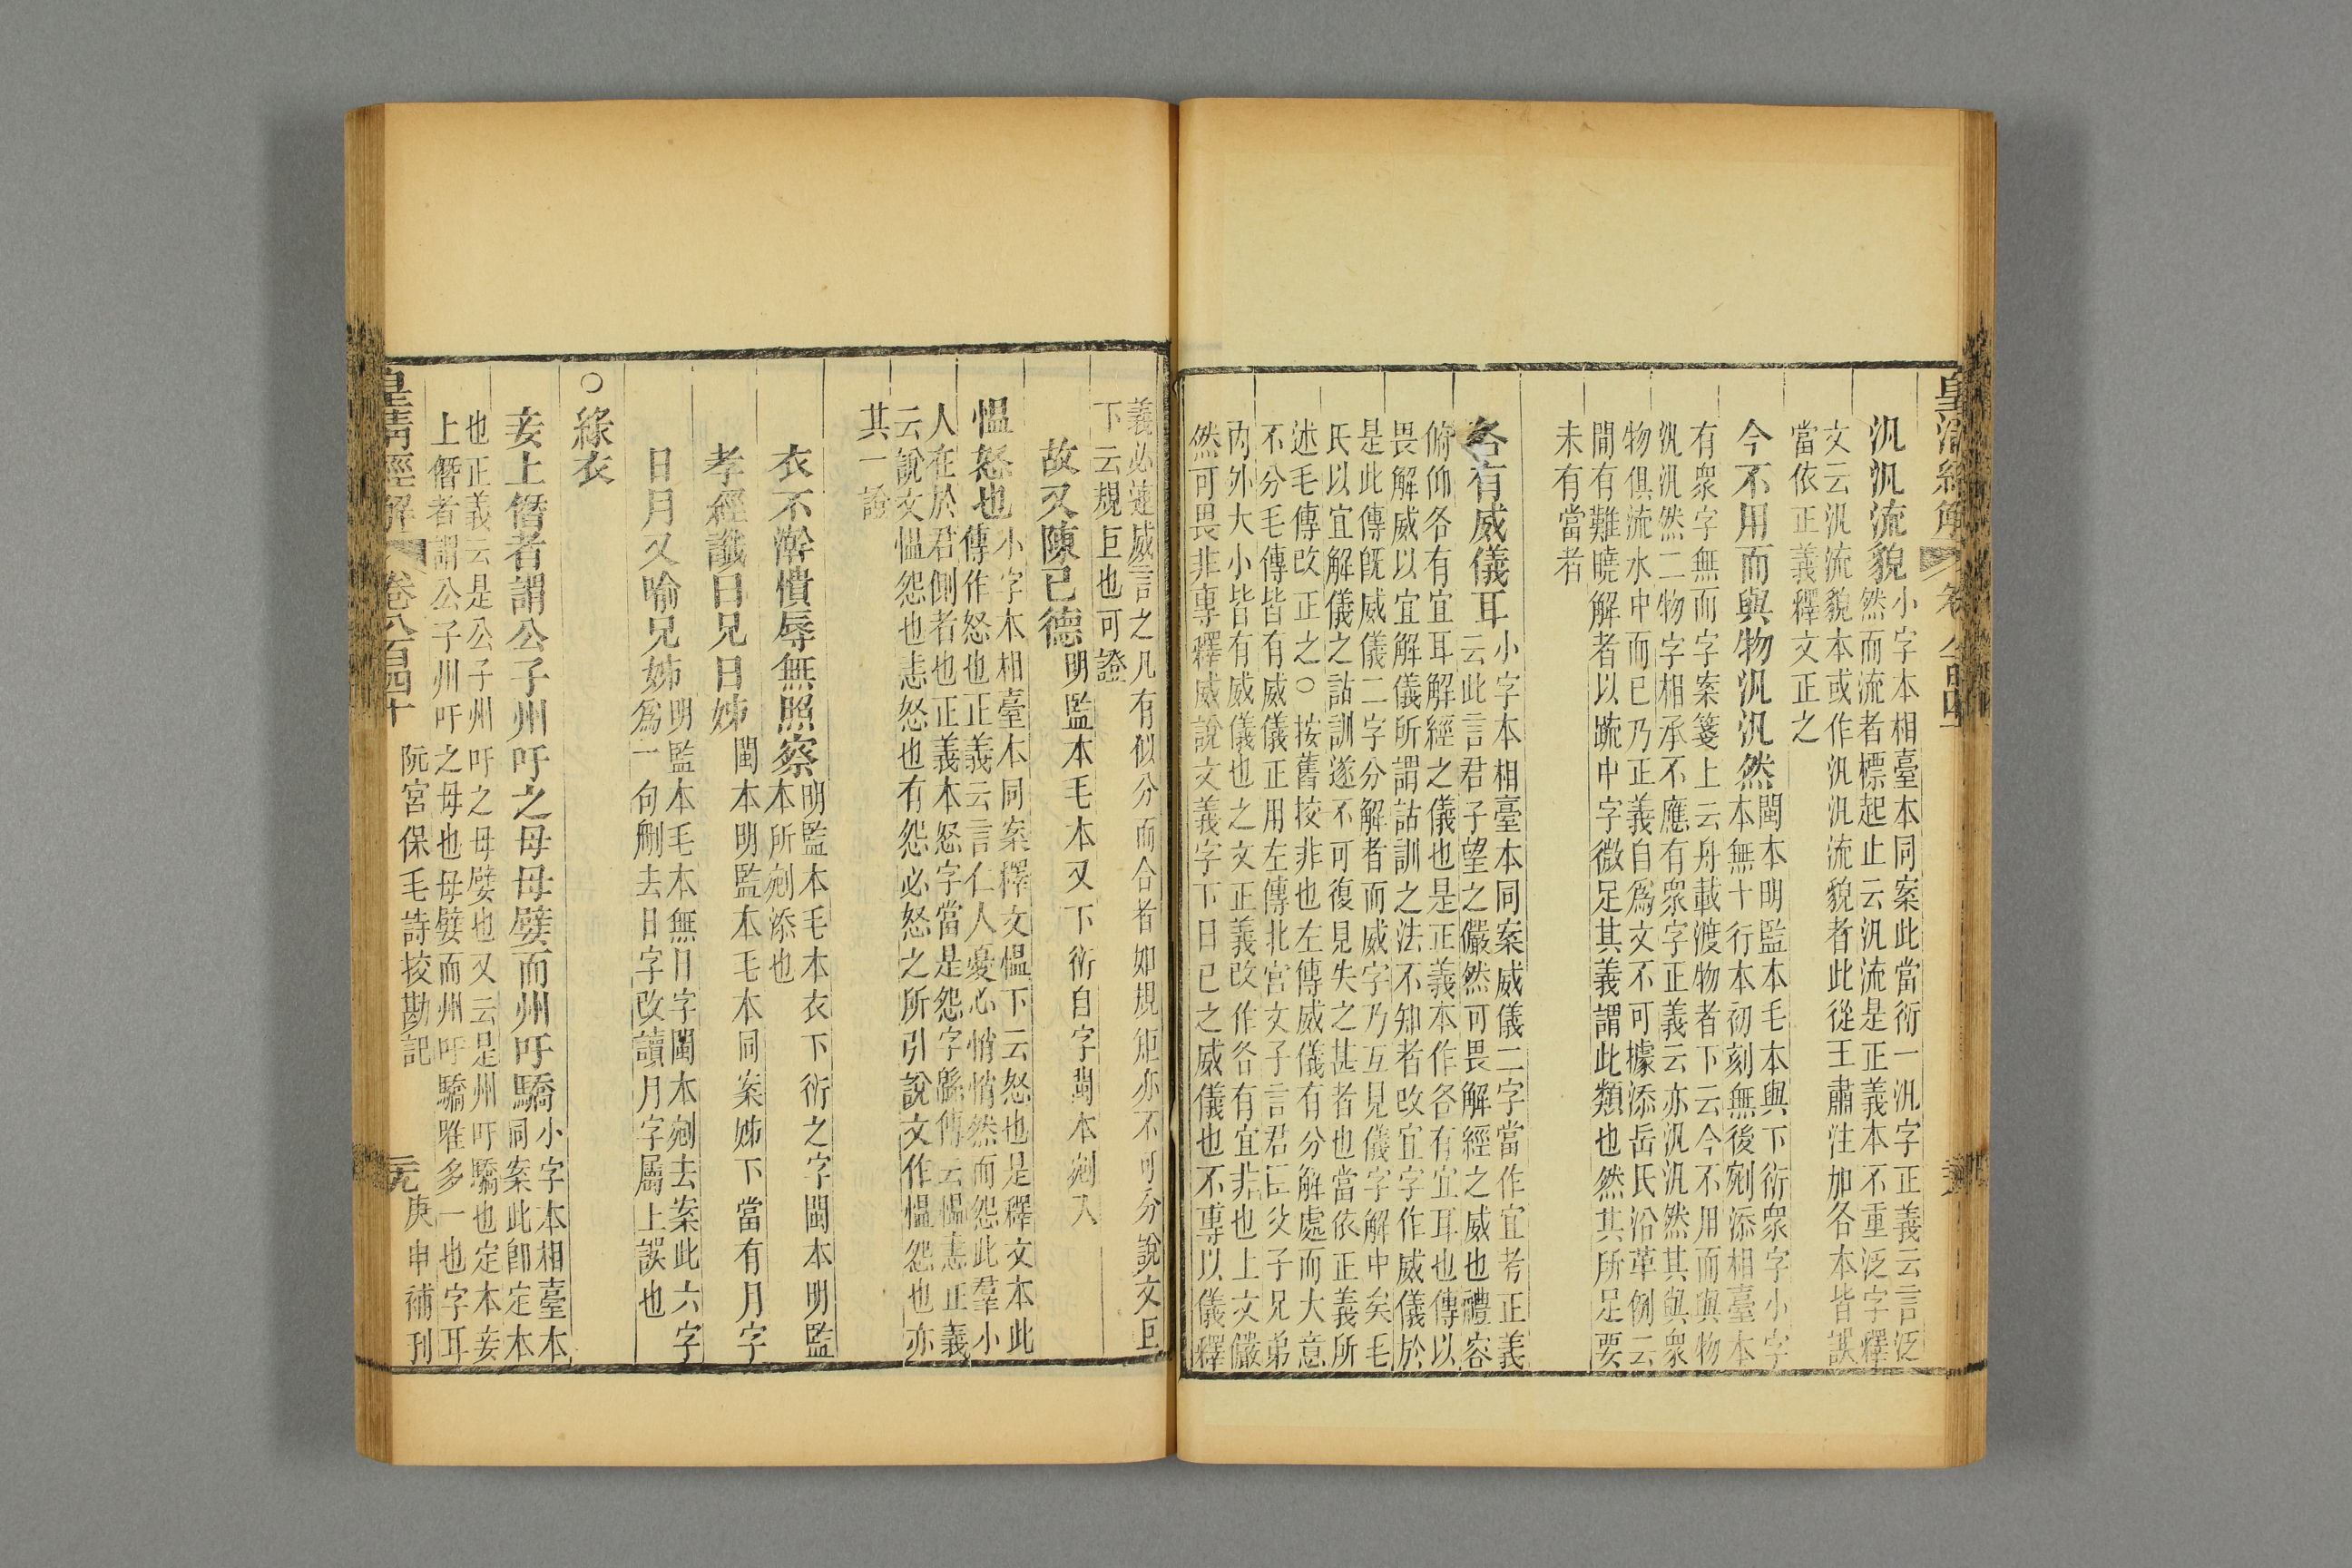 皇清經解
汎汎流貌小字本相臺本同案此當衍一汎字正義云言泛
然而流者標起止云汎流是正義本不重泛字釋
文云汎流貌本或作汎汎流貌者此從王肅注加各本皆誤
當依正義釋文正之
今不用而與物汎汎然閩本明監本毛本與下衍衆字小字
本無十行本初刻無後剜添相臺本
有衆字無而字案箋上云舟載渡物者下云今不用而與物
汎汎然二物字相承不應有衆字正義云亦汎汎然其與衆
物俱流水中而已乃正義自爲文不可據添岳氏沿革例云
間有難曉解者以䟽中字微足其義謂此類也然其所足要
未有當者
各有威儀耳小字本相臺本同案威儀二字當作宜考正義
云此言君子望之儼然可畏解經之威也禮容
俯仰各有宜耳解經之儀也是正義本作各有宜耳也傳以
畏解威以宜解儀所謂詁訓之法不知者改宜字作威儀於
是此傳旣威儀二字分解者而威字乃互見儀字解中矣毛
氏以宜解儀之詁訓遂不可復見失之甚者也當依正義所
述毛傳改正之○按舊挍非也左傳威儀有分解處而大意
不分毛傳皆有威儀正用左傳北宮文子言君臣父子兄弟
內外大小皆有威儀也之文正義改作各有宜非也上文儼
然可畏非專釋威說文義字下曰己之威儀也不專以儀釋
義必連威言之凡有似分而合者如規矩亦不可分說文巨
下云規巨也可證
故又陳己德明監本毛本又下衍自字閩本剜入
慍怒也小字本相臺本同案釋文慍下云怒也是釋文本此
傳作怒也正義云言仁人憂心悄悄然而怨此羣小
人在於君側者也正義本怒字當是怨字緜傳云慍恚正義
云說文慍怨也恚怒也有怨必怒之所引說文作慍怨也亦
其一證
衣不澣憒辱無照察明監本毛本衣下衍之字閩本明監
本所剜添也
孝經讖曰兄日姊閩本明監本毛本同案姊下當有月字
日月又喻兄姊明監本毛本無日字閩本剜去案此六字
爲一句刪去日字改讀月字屬上誤也
○綠衣
妾上僭者謂公子州吁之母母嬖而州吁驕小字本相臺本
同案此卽定本
也正義云是公子州吁之母嬖也又云是州吁驕也定本妾
上僭者謂公子州吁之母也母嬖而州吁驕唯多一也字耳
皇清經解 卷八百四十 阮宮保毛詩挍勘記 庚申補刊